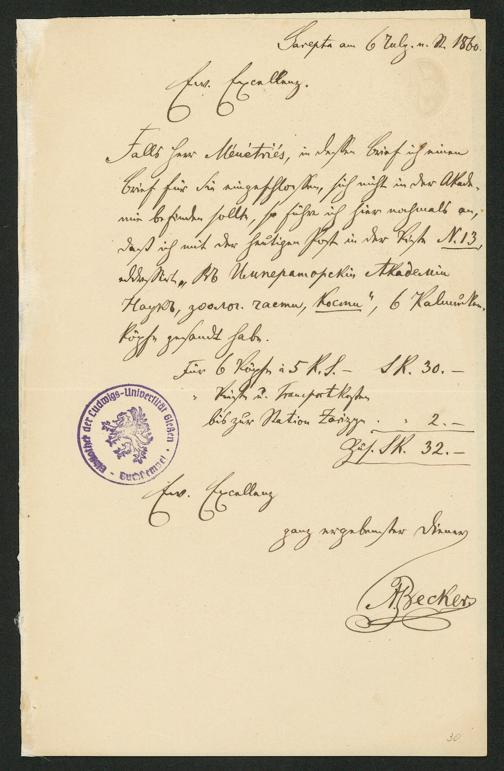 Sarepta am 6 July. n. St. 1860.
Ew. Excellenz.
Falls Herr Ménétriés, in dessen Brief ich einen
Brief für Sie eingeschlossen, sich nicht in der Akade-
mie befinden sollte, so führe ich hier nochmals an,
daß ich mit der heutigen Post in der Kiste N. 13,
addressirt „Въ Императорскiй Академiи
Наукъ, зоолог. части, Кости“, 6 Kalmücken-
köpfe gesandt habe.
Für 6 Köpfe à 5 R. S. — SR. 30. —
" Kiste u. Transportkosten
bis zur Station " 2. —
Zus. SR. 32. —
Bibliothek der Ludwigs-Universität Gießen
Ew. Excellenz
ganz ergebenster Diener
ABecker
30